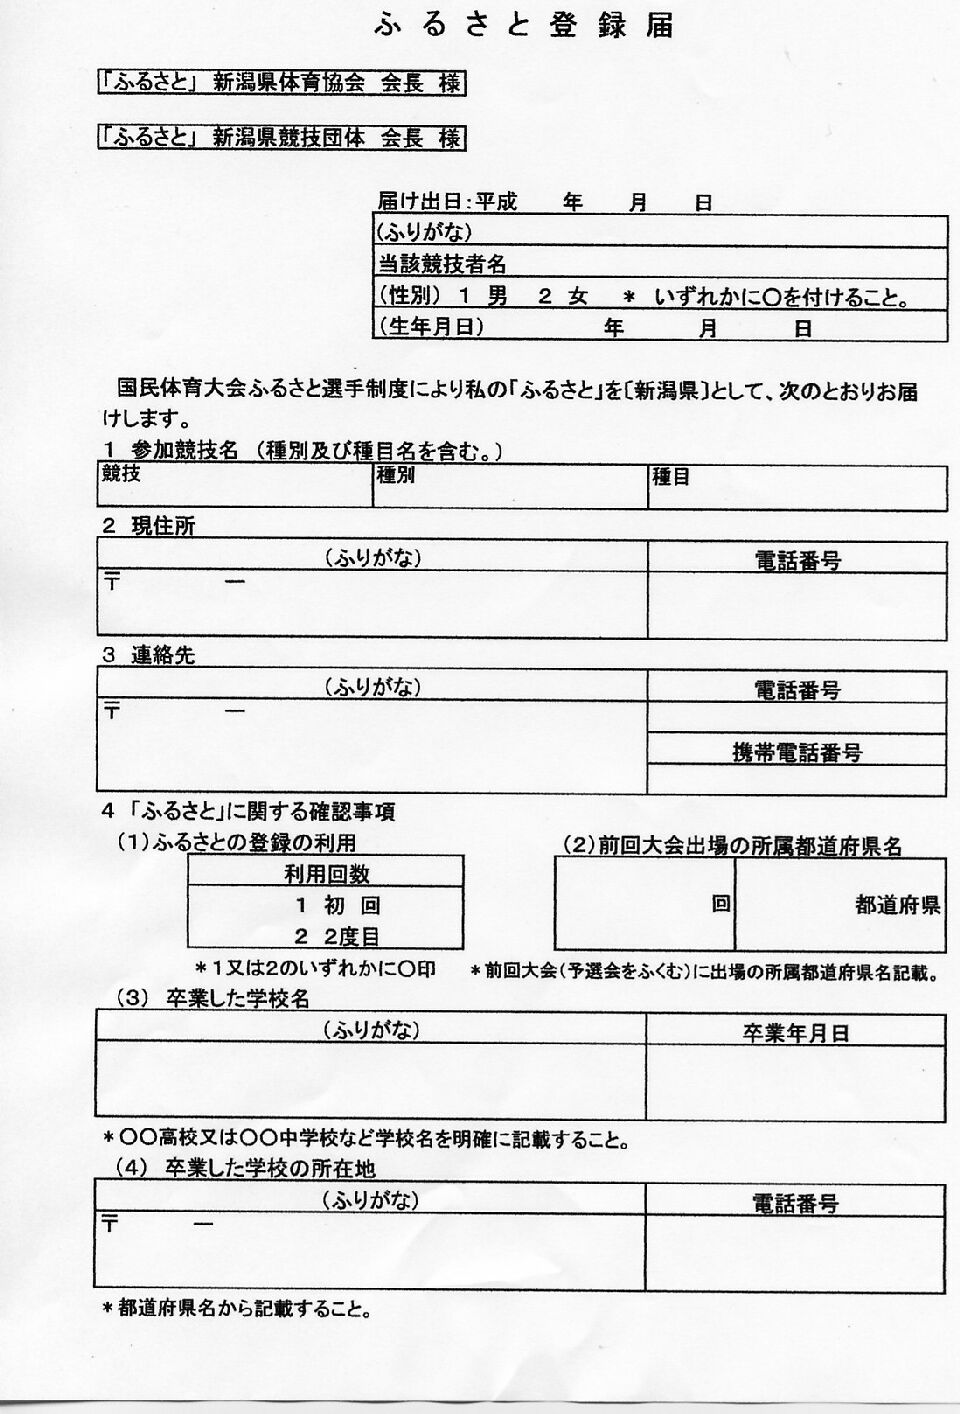 ふるさと登録届
「ふるさと」 新潟県体育協会 会長 様
「ふるさと」 新潟県競技団体 会長 様
届け出日:平成 年 月 日
(ふりがな)
当該競技者名
(性別) 1 男 2 女 * いずれかに〇を付けること。
(生年月日) 年 月 日
国民体育大会ふるさと選手制度により私の「ふるさと」を〔新潟県〕として、次のとおりお届
けします。
1 参加競技名 (種別及び種目名を含む。)
競技 種別 種目
2 現住所
(ふりがな) 電話番号
〒 ー
3 連絡先
(ふりがな) 電話番号
〒 ー
携帯電話番号
4 「ふるさと」に関する確認事項
(1)ふるさとの登録の利用 (2)前回大会出場の所属都道府県名
利用回数
1 初 回
2 2度目
回 都道府県
*1又は2のいずれかに〇印 *前回大会(予選会をふくむ)に出場の所属都道府県名記載。
(3) 卒業した学校名
(ふりがな) 卒業年月日
*〇〇高校又は〇〇中学校など学校名を明確に記載すること。
(4) 卒業した学校の所在地
(ふりがな) 電話番号
〒 ー
*都道府県名から記載すること。